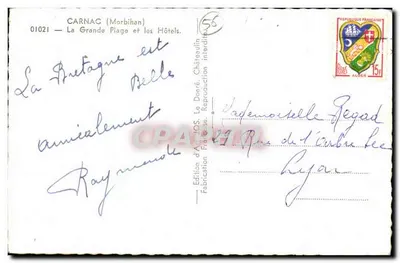 CARNAC (Morbihan)
01021 — La Grande Plage et les Hôtels.
56
REPUBLIQUE FRANÇAISE
15F
La Bretagne est
Belle
amicalement
Raymonde
Edition d'Art JOS Le Doaré, Châteaulin
Fabrication Française. Reproduction interdite
Mademoiselle Regad
29 Rue de l'Arbre Sec
Lyon